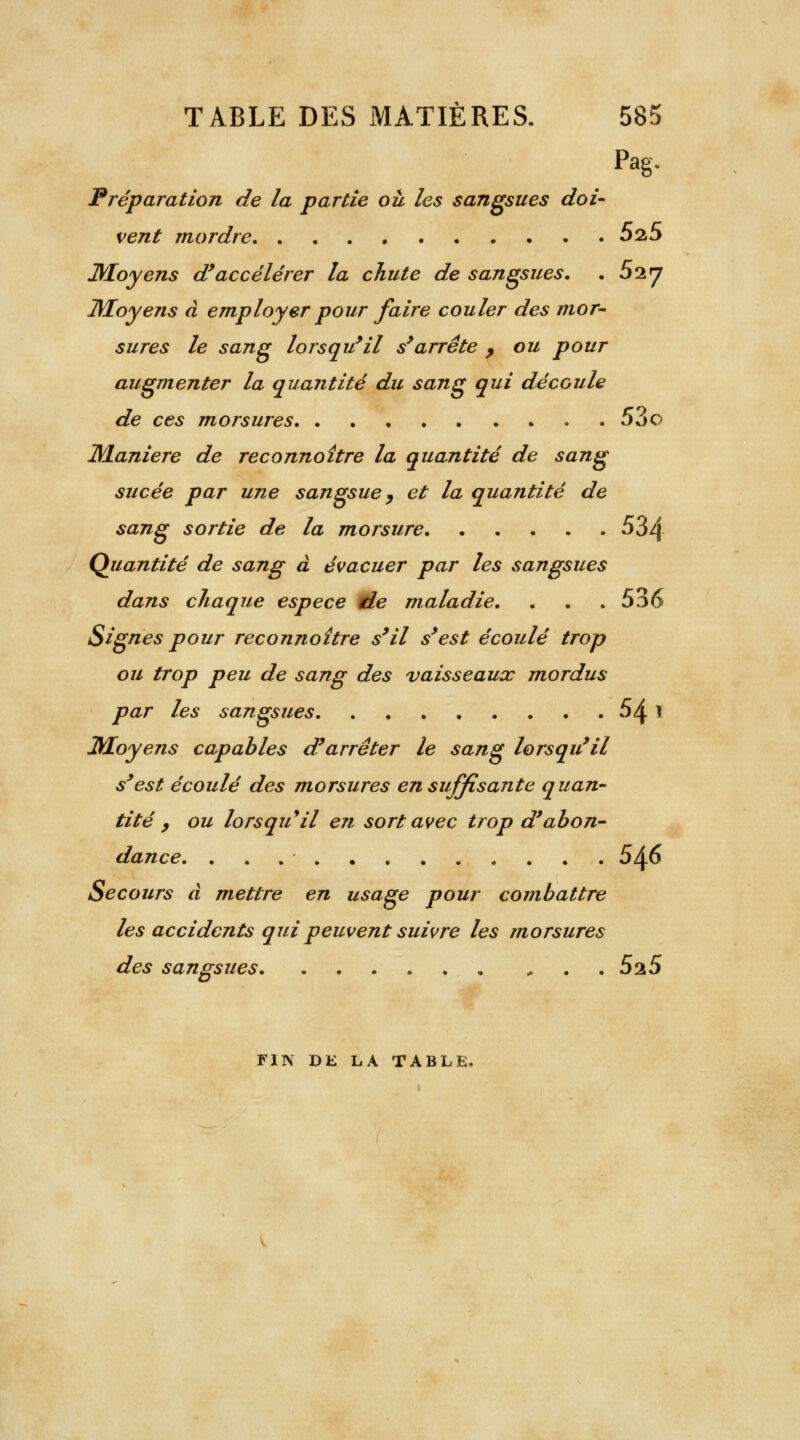 TABLE DES MATIÈRES. 585
Pag.
Préparation de la partie où les sangsues doi-
vent mordre. . . . . . . . . . . 525
Moyens d'accélérer la chute de sangsues. . 527
Moyens à employer pour faire couler des mor-
sures le sang lorsqu'il s'arrête, ou pour
augmenter la quantité du sang qui découle
de ces morsures. . . . . . . . . . 530
Maniere de reconnoître la quantité de sang
sucée par une sangsue, et la quantité de
sang sortie de la morsure. . . . . . 534
Quantité de sang à évacuer par les sangsues
dans chaque espece de maladie. . . . 536
Signes pour reconnoître s'il s'est écoulé trop
ou trop peu de sang des vaisseaux mordus
par les sangsues. . . . . . . . . 541
Moyens capables d'arrêter le sang lorsqu'il
s'est écoulé des morsures en suffisante quan-
tité, ou lorsqu'il en sort avec trop d'abon-
dance. . . . . . . . . . . . . 546
Secours à mettre en usage pour combattre
les accidents qui peuvent suivre les morsures
des sangsues. . . . . . . . . . 525
FIN DE LA TABLE.